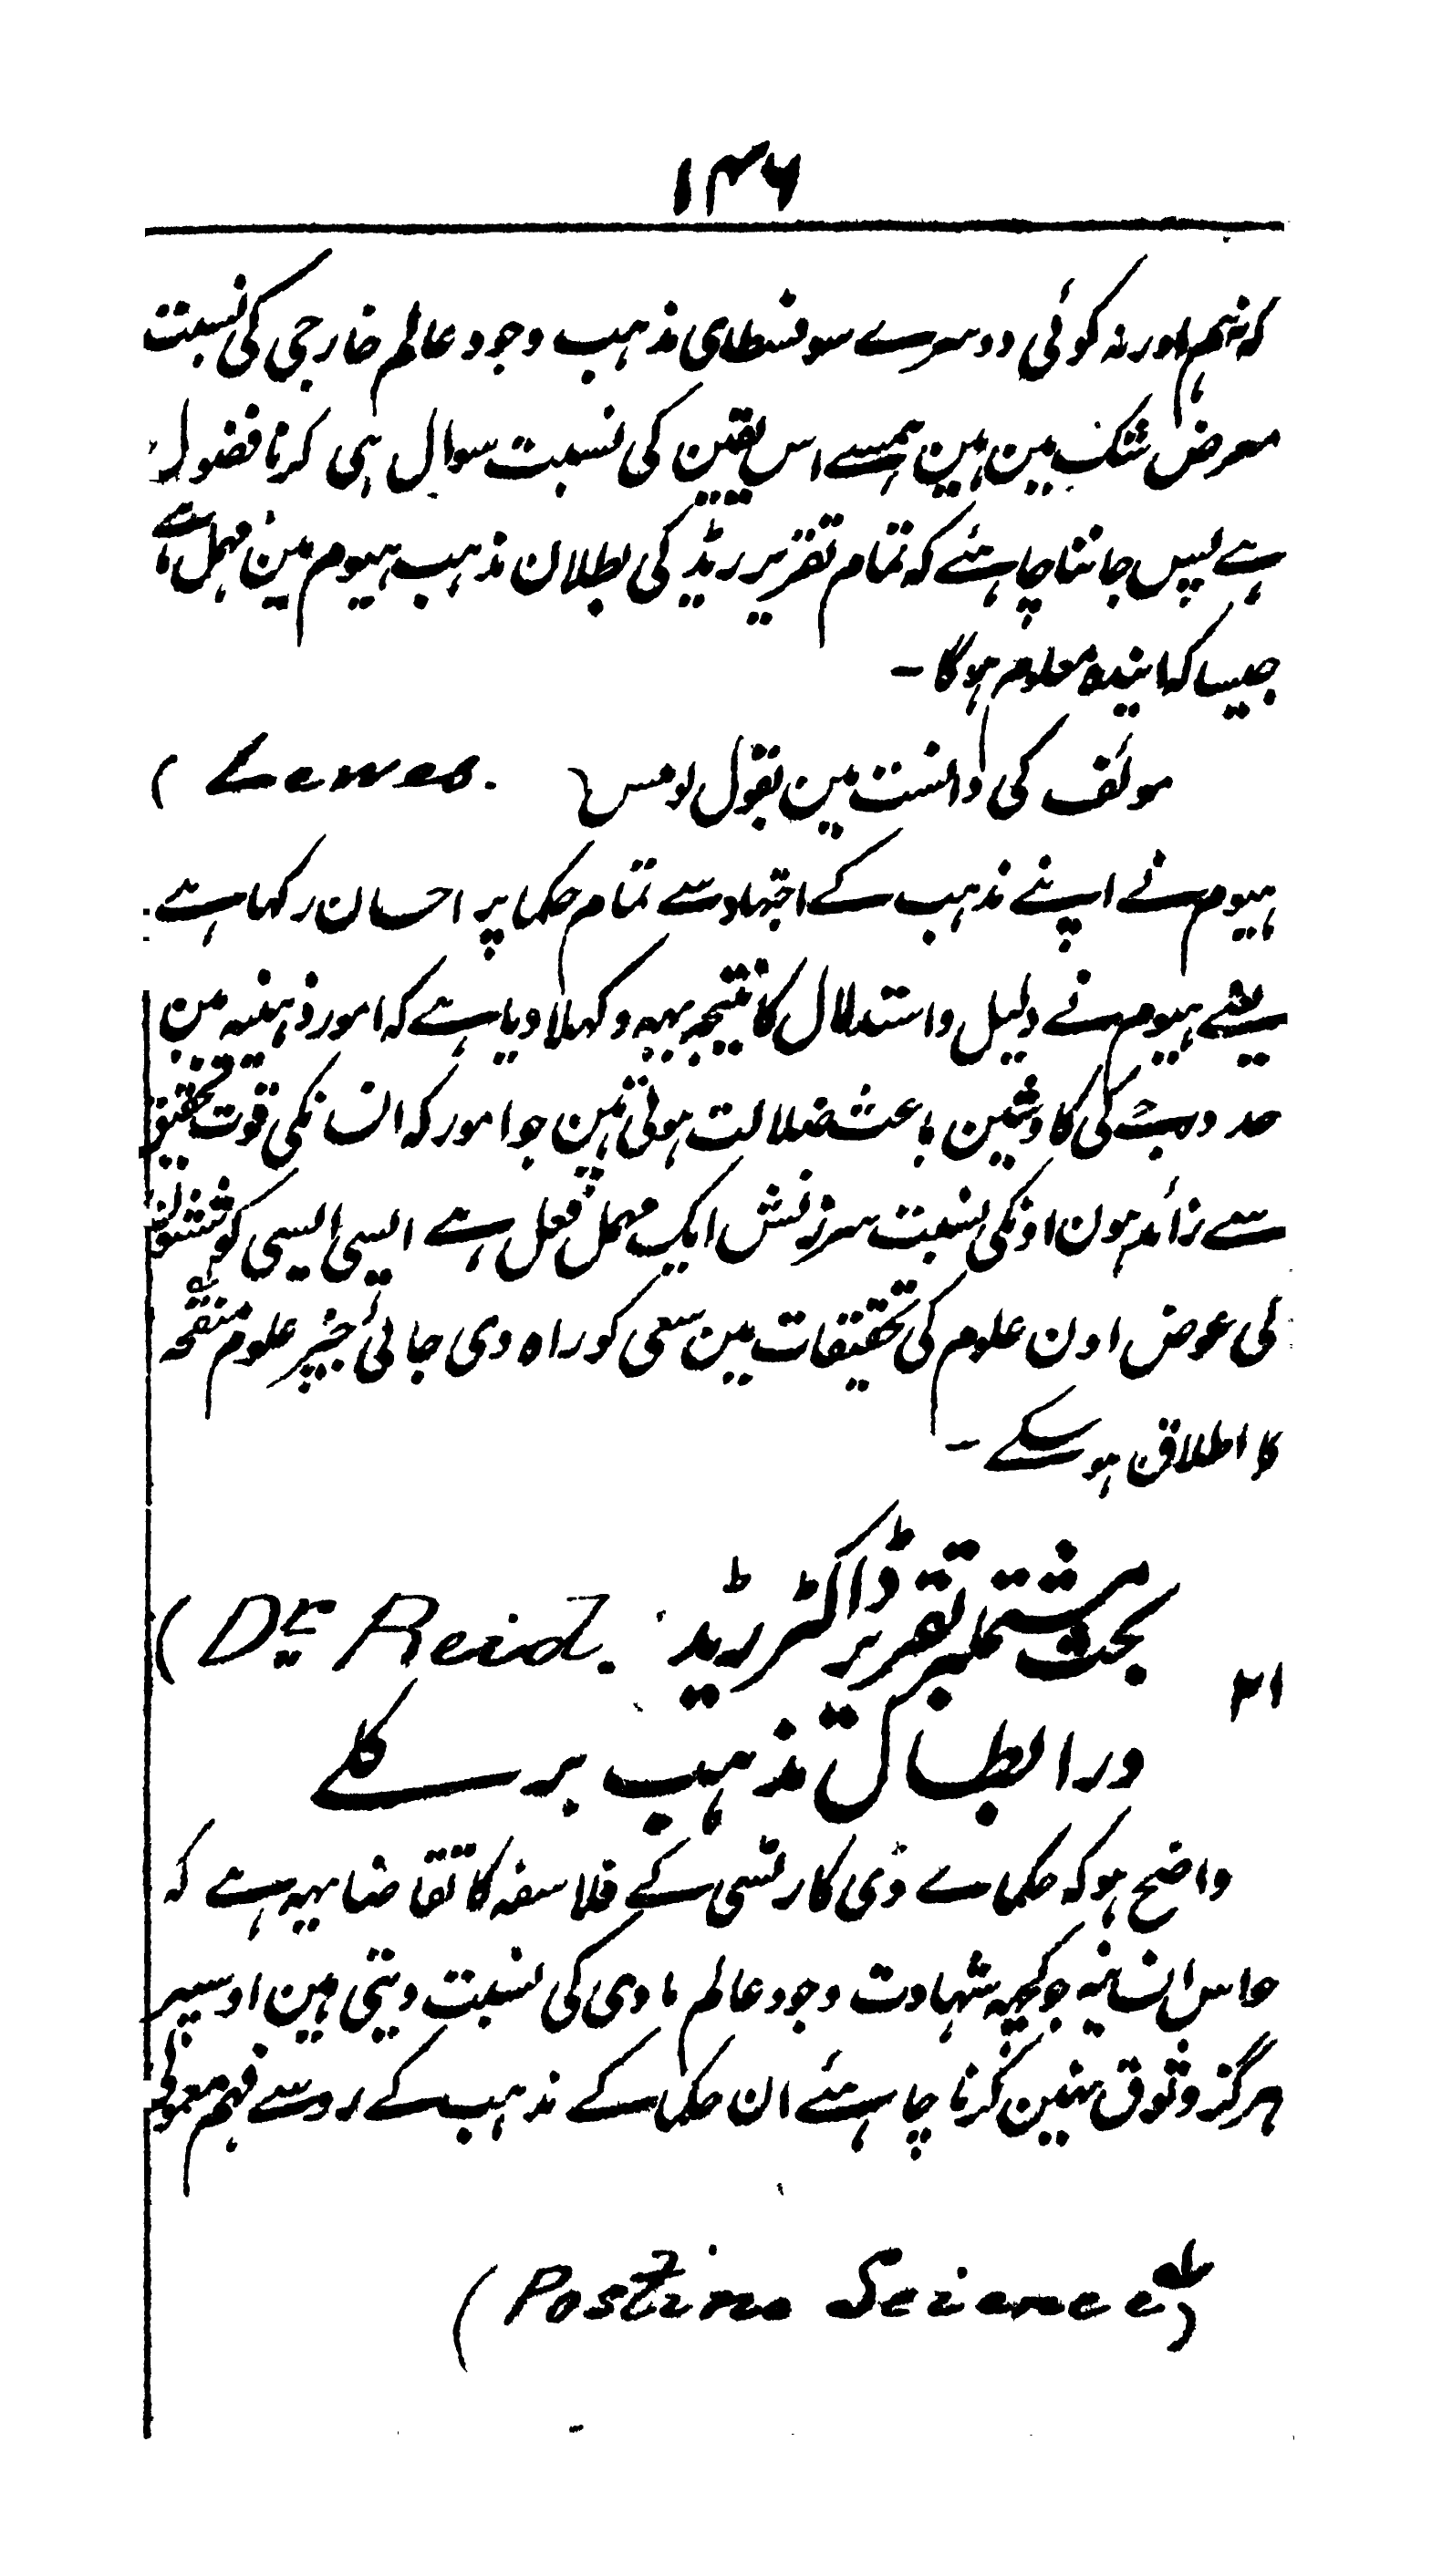 ۱۴۶
کہ نہم اور نہ کوئی دوسرے سوفسطای مذہب وجود عالم خارجی کی نسبت
معرض شک مین ہین ہمسے اس یقین کی نسبت سوال ہی کرنا فضول
ہے پس جاننا چاہئے کہ تمام تقریر ریڈ کی بطلان مذہب ہیوم مین مہمل ہے
جیسا کہ ایندہ معلوم ہوگا ۔
مولف کی دانست مین بقول لومس ( Lewes.
ہیوم نے اپنے مذہب کے اجتہاد سے تمام حکما پر احسان رکہا ہے
یعنے ہیوم نے دلیل و استدلال کا نتیجہ یہہ دکہلا دیا ہے کہ امور ذہنیہ من
حد درجے کی کاوشین باعث ضلالت ہوتی ہین جو امور کہ انسانکی قوت تحقیق
سے زائد ہون اونکی نسبت سرزنش ایک مہمل فعل ہے ایسی ایسی کوششونکی
لی عوض اون علوم کی تحقیقات مین سعی کو راہ دی جائی جنپر علوم منقحہ
کا اطلاق ہو سکے ۔
بحث مشتملبر تقریر ڈاکٹر ریڈ ( Dr Reid.
۲۱
در ابطال مذہب برکلے
واضح ہو کہ حکماے ڈی کارٹسی کے فلاسفہ کا تقاضا یہہ ہے کہ
حاس انسانیہ جو کچہہ شہادت وجود عالم مادی کی نسبت دیتی ہین اوسپر
ہرگز وثوق نہین کرنا چاہئے ان حکما کے مذہب کے رو سے فہم معمولی
( Postive Science )